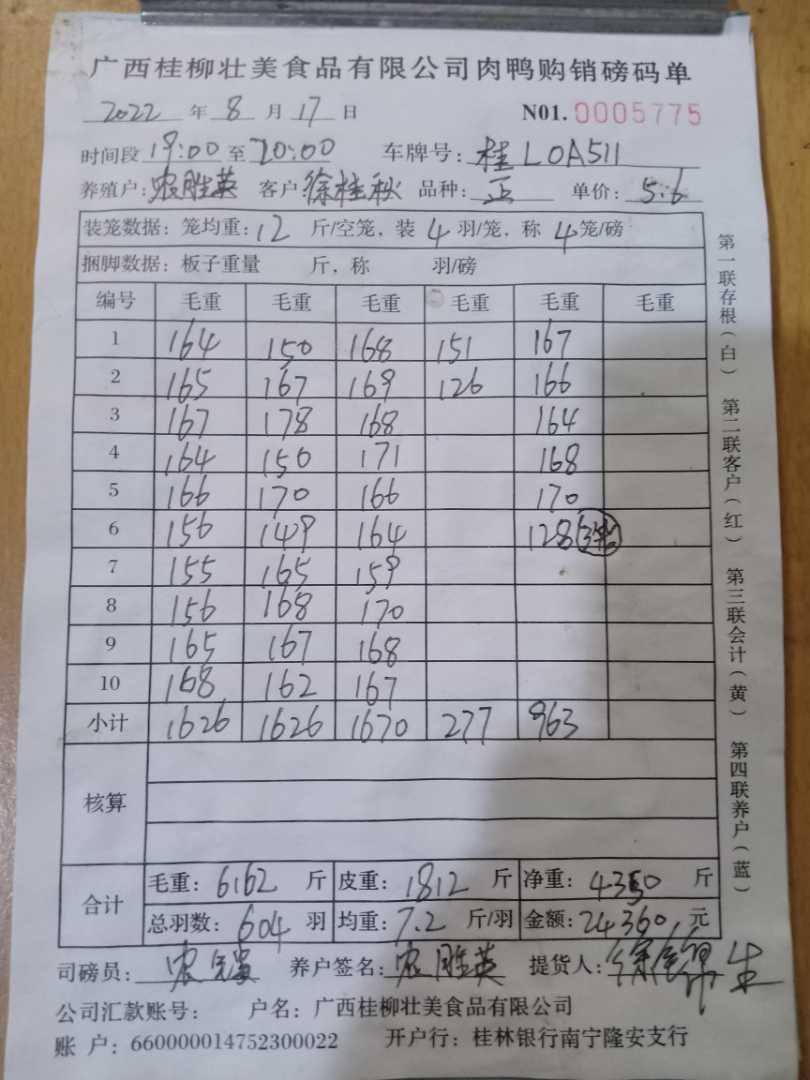 广西桂柳壮美食品有限公司肉鸭购销磅码单
2022 年 8 月 17 日 N01. 0005775
时间段 19:00 至 20:00 车牌号: 桂L0A511
养殖户: 农胜英 客户: 徐桂秋 品种: 正 单价: 5.6
装笼数据: 笼均重: 12 斤/空笼, 装 4 羽/笼, 称 4 笼/磅
捆脚数据: 板子重量 斤, 称 羽/磅
编号 毛重 毛重 毛重 毛重 毛重 毛重
1 164 150 168 151 167
2 165 167 169 126 166
3 167 178 168 164
4 164 150 171 168
5 166 170 166 170
6 156 149 164 128
7 155 165 159
8 156 168 170
9 165 167 168
10 168 162 167
小计 1626 1626 1670 277 963
核算
合计 毛重: 6162 斤 皮重: 1812 斤 净重: 4350 斤
总羽数: 604 羽 均重: 7.2 斤/羽 金额: 24360 元
司磅员: 养户签名: 农胜英 提货人:
公司汇款账号: 户名: 广西桂柳壮美食品有限公司
账 户: 660000014752300022 开户行: 桂林银行南宁隆安支行
第一联存根(白) 第二联客户(红) 第三联会计(黄) 第四联养户(蓝)